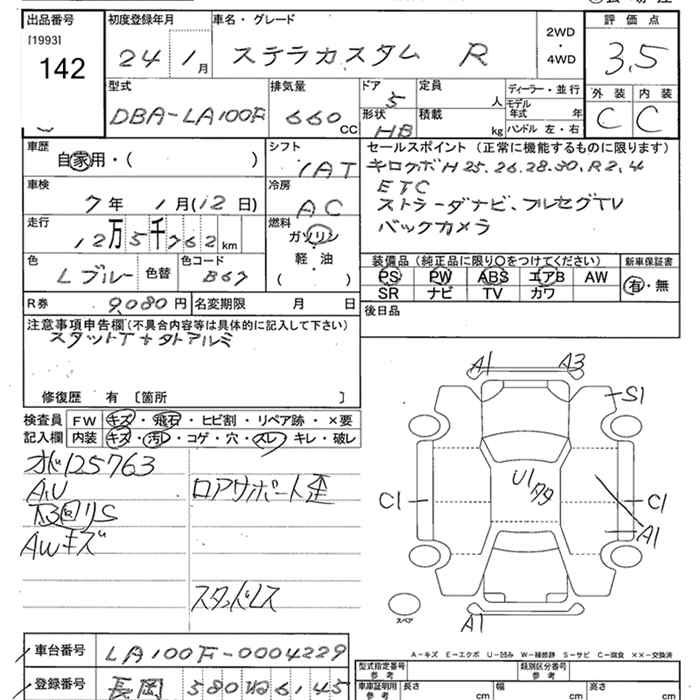 出品番号 [1993] 142
初度登録年月 24 1 月
車名・グレード ステラカスタム R
2WD・4WD
評価点 3.5
外装 C 内装 C
型式 DBA-LA100F
排気量 660 CC
ドア 5 形状 HB
定員 人 積載 kg
ディーラー・並行 モデル年式 年 ハンドル 左・右
車歴 自家用・( )
シフト IAT
セールスポイント (正常に機能するものに限ります)
キロクボH25.26.28.30,R2,4
ETC
ストラーダナビ、フルセグTV
バックカメラ
車検 7年 1月(12日)
冷房 AC
走行 12万5千762km
燃料 ガソリン 軽・油 ( )
色 Lブルー 色替 色コード B67
装備品 (純正品に限り〇をつけてください) 新車保証書
PS PW ABS エアB AW 有・無
SR ナビ TV カワ
R券 9,080円 名変期限 月 日
後日品
注意事項申告欄(不具合内容等は具体的に記入して下さい)
スタットT+タトアルミ
修復歴 有 [箇所 ]
検査員 FW キズ・飛石・ヒビ割・リペア跡・×要
記入欄 内装 キズ・汚レ・コゲ・穴・スレ・キレ・破レ
A1 A3
S1
オド125763
AU
ロアサポート歪
U1
C1 C1
A1
AWキズ
スタッドレス
スペア
A1
A-キズ E-エクボ U-凹み W-補修跡 S-サビ C-腐食 ××-交換済
車台番号 LA100F-0004229
型式指定番号 参考 類別区分番号 参考
登録番号 長岡 580 6145
車庫証明用 参考 長さ cm 幅 cm 高さ cm